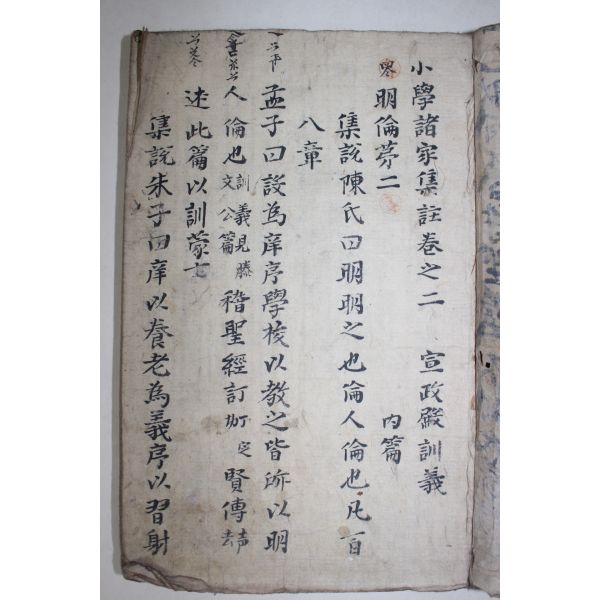 小學諸家集註卷之二 宣政殿訓義
內篇
明倫第二
集說陳氏曰明明之也倫人倫也凡百
八章
孟子曰設為庠序學校以教之皆所以明
人倫也訓義見滕文公篇稽聖經訂賢傳去聲
述此篇以訓蒙士
集說朱子曰庠以養老為義序以習射